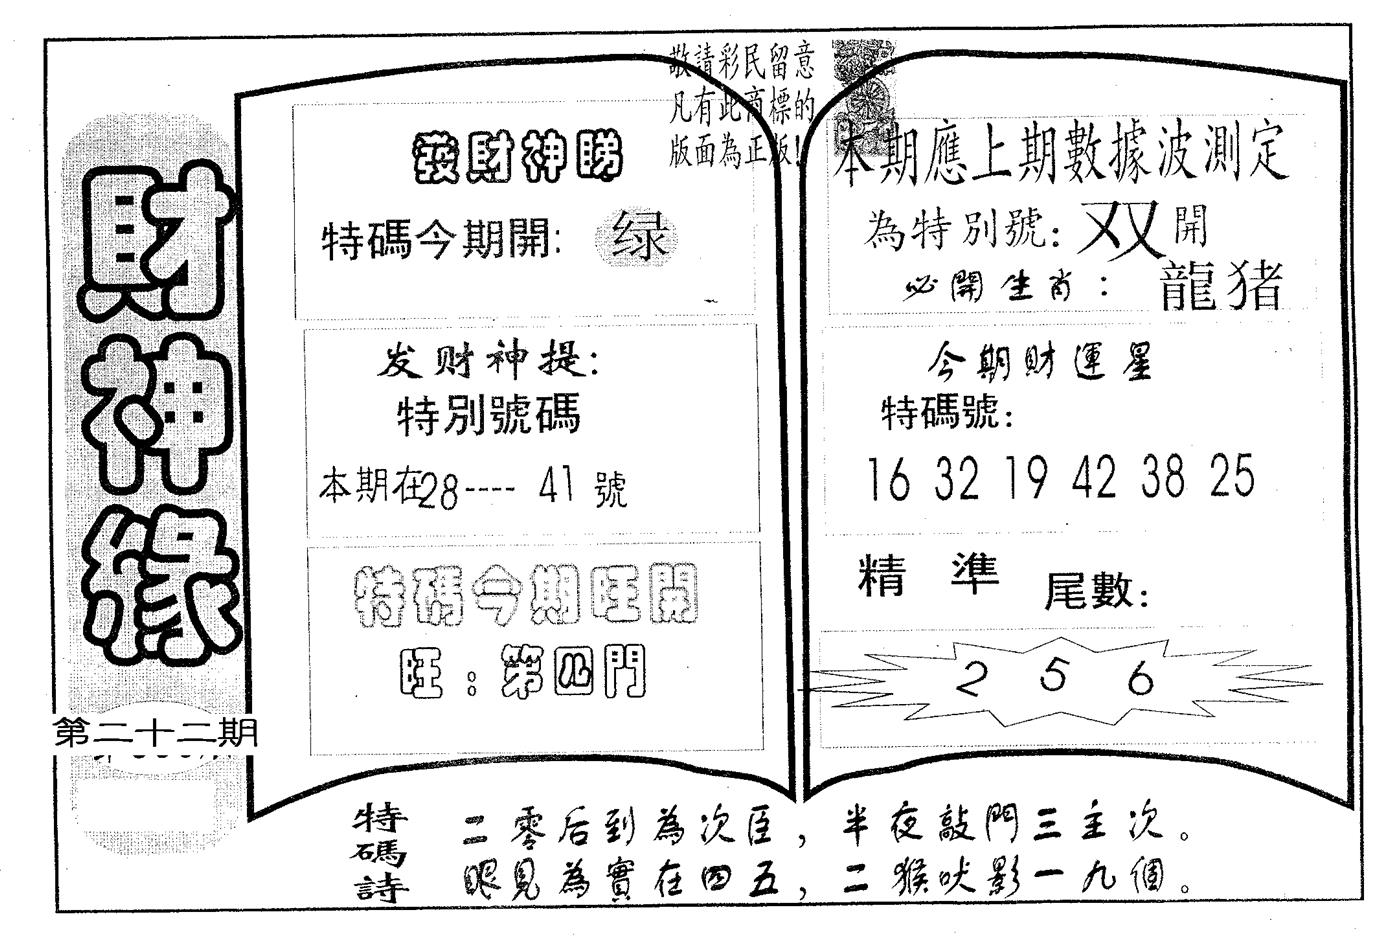 財神緣
第二十二期
敬請彩民留意
凡有此商標的
版面為正版!
發財神睇
特碼今期開: 绿
发财神提:
特別號碼
本期在28---- 41 號
特碼今期旺開
旺: 第四門
本期應上期數據波測定
為特別號: 双 開
必開生肖: 龍猪
今期財運星
特碼號:
16 32 19 42 38 25
精 準 尾數:
2 5 6
特碼詩
二零后到為次臣,半夜敲門三主次。
眼見為實在四五,二猴吠影一九個。